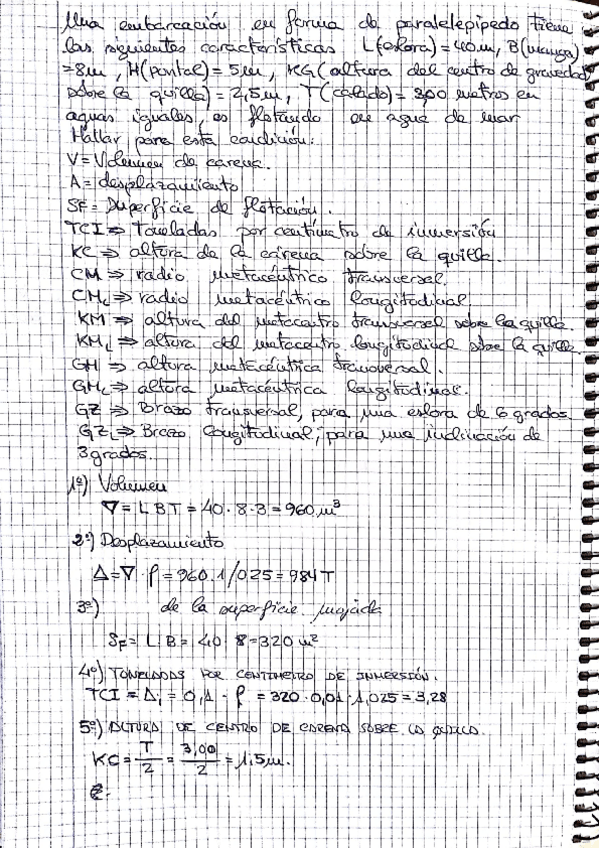 Una embarcación en forma de paralelepipedo tiene
las siguientes características L(eslora)=40m, B(manga)
=8m, H(puntal)=5m, KG(altura del centro de gravedad
sobre la quilla)=2,5m, T(calado)=3,00 metros en
aguas iguales, es flotando en agua de mar
Hallar para esta condición:
V=Volumen de carena.
Δ=desplazamiento
SF=Superficie de flotación.
TCI⇒Toneladas por centímetro de inmersión
KC⇒altura de la carena sobre la quilla.
CM⇒radio metacéntrico transversal.
CM_L⇒radio metacéntrico longitudinal
KM⇒altura del metacentro transversal sobre la quilla
KM_L⇒altura del metacentro longitudinal sobre la quilla.
GM⇒altura metacéntrica transversal.
GM_L⇒altura metacéntrica longitudinal.
GZ⇒Brazo transversal, para una eslora de 6 grados.
GZ_L⇒Brazo longitudinal, para una inclinación de
3 grados.
1º) Volumen
∇=LBT=40·8·3=960m³
2º) Desplazamiento
Δ=∇·ρ=960.1/025=984T
3º) de la superficie mojada
S_F=L·B=40·8=320m²
4º) TONELADAS POR CENTIMETRO DE INMERSIÓN.
TCI=Δi=0,1·ρ=320·0,01·1,025=3,28
5º) ALTURA DE CENTRO DE CARENA SOBRE LA QUILLA
KC=T/2=3,00/2=1,5m.